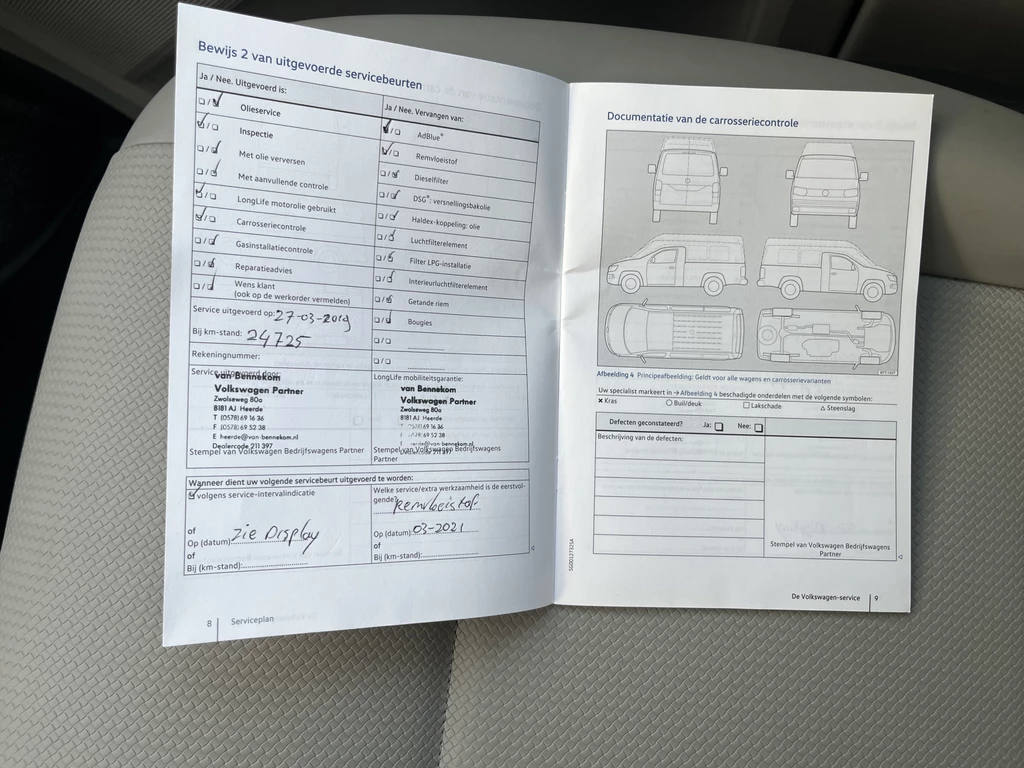 Bewijs 2 van uitgevoerde servicebeurten
Ja / Nee. Uitgevoerd is:
Olieservice
Inspectie
Met olie verversen
Met aanvullende controle
LongLife motorolie gebruikt
Carrosseriecontrole
Gasinstallatiecontrole
Reparatieadvies
Wens klant
(ook op de werkorder vermelden)
Ja / Nee. Vervangen van:
AdBlue®
Remvloeistof
Dieselfilter
DSG®: versnellingsbakolie
Haldex-koppeling: olie
Luchtfilterelement
Filter LPG-installatie
Interieurluchtfilterelement
Getande riem
Bougies
Service uitgevoerd op: 27-03-2019
Bij km-stand: 24725
Rekeningnummer:
Service uitgevoerd door:
van Bennekom
Volkswagen Partner
Zwolseweg 80a
8181 AJ Heerde
T (0578) 69 16 36
F (0578) 69 52 38
E heerde@van-bennekom.nl
Dealercode 211 397
Stempel van Volkswagen Bedrijfswagens Partner
LongLife mobiliteitsgarantie:
van Bennekom
Volkswagen Partner
Zwolseweg 80a
8181 AJ Heerde
69 16 36
69 52 38
Stempel van Volkswagen Bedrijfswagens
Partner
Wanneer dient uw volgende servicebeurt uitgevoerd te worden:
volgens service-intervalindicatie
of
Op (datum): zie Display
of
Bij (km-stand):
Welke service/extra werkzaamheid is de eerstvol-
gende? Remvloeistof
Op (datum): 03-2021
of
Bij (km-stand):
8 Serviceplan
Documentatie van de carrosseriecontrole
Afbeelding 4 Principeafbeelding: Geldt voor alle wagens en carrosserievarianten
Uw specialist markeert in → Afbeelding 4 beschadigde onderdelen met de volgende symbolen:
× Kras ○ Buil/deuk □ Lakschade △ Steenslag
Defecten geconstateerd? Ja: □ Nee: □
Beschrijving van de defecten:
Stempel van Volkswagen Bedrijfswagens
Partner
De Volkswagen-service 9